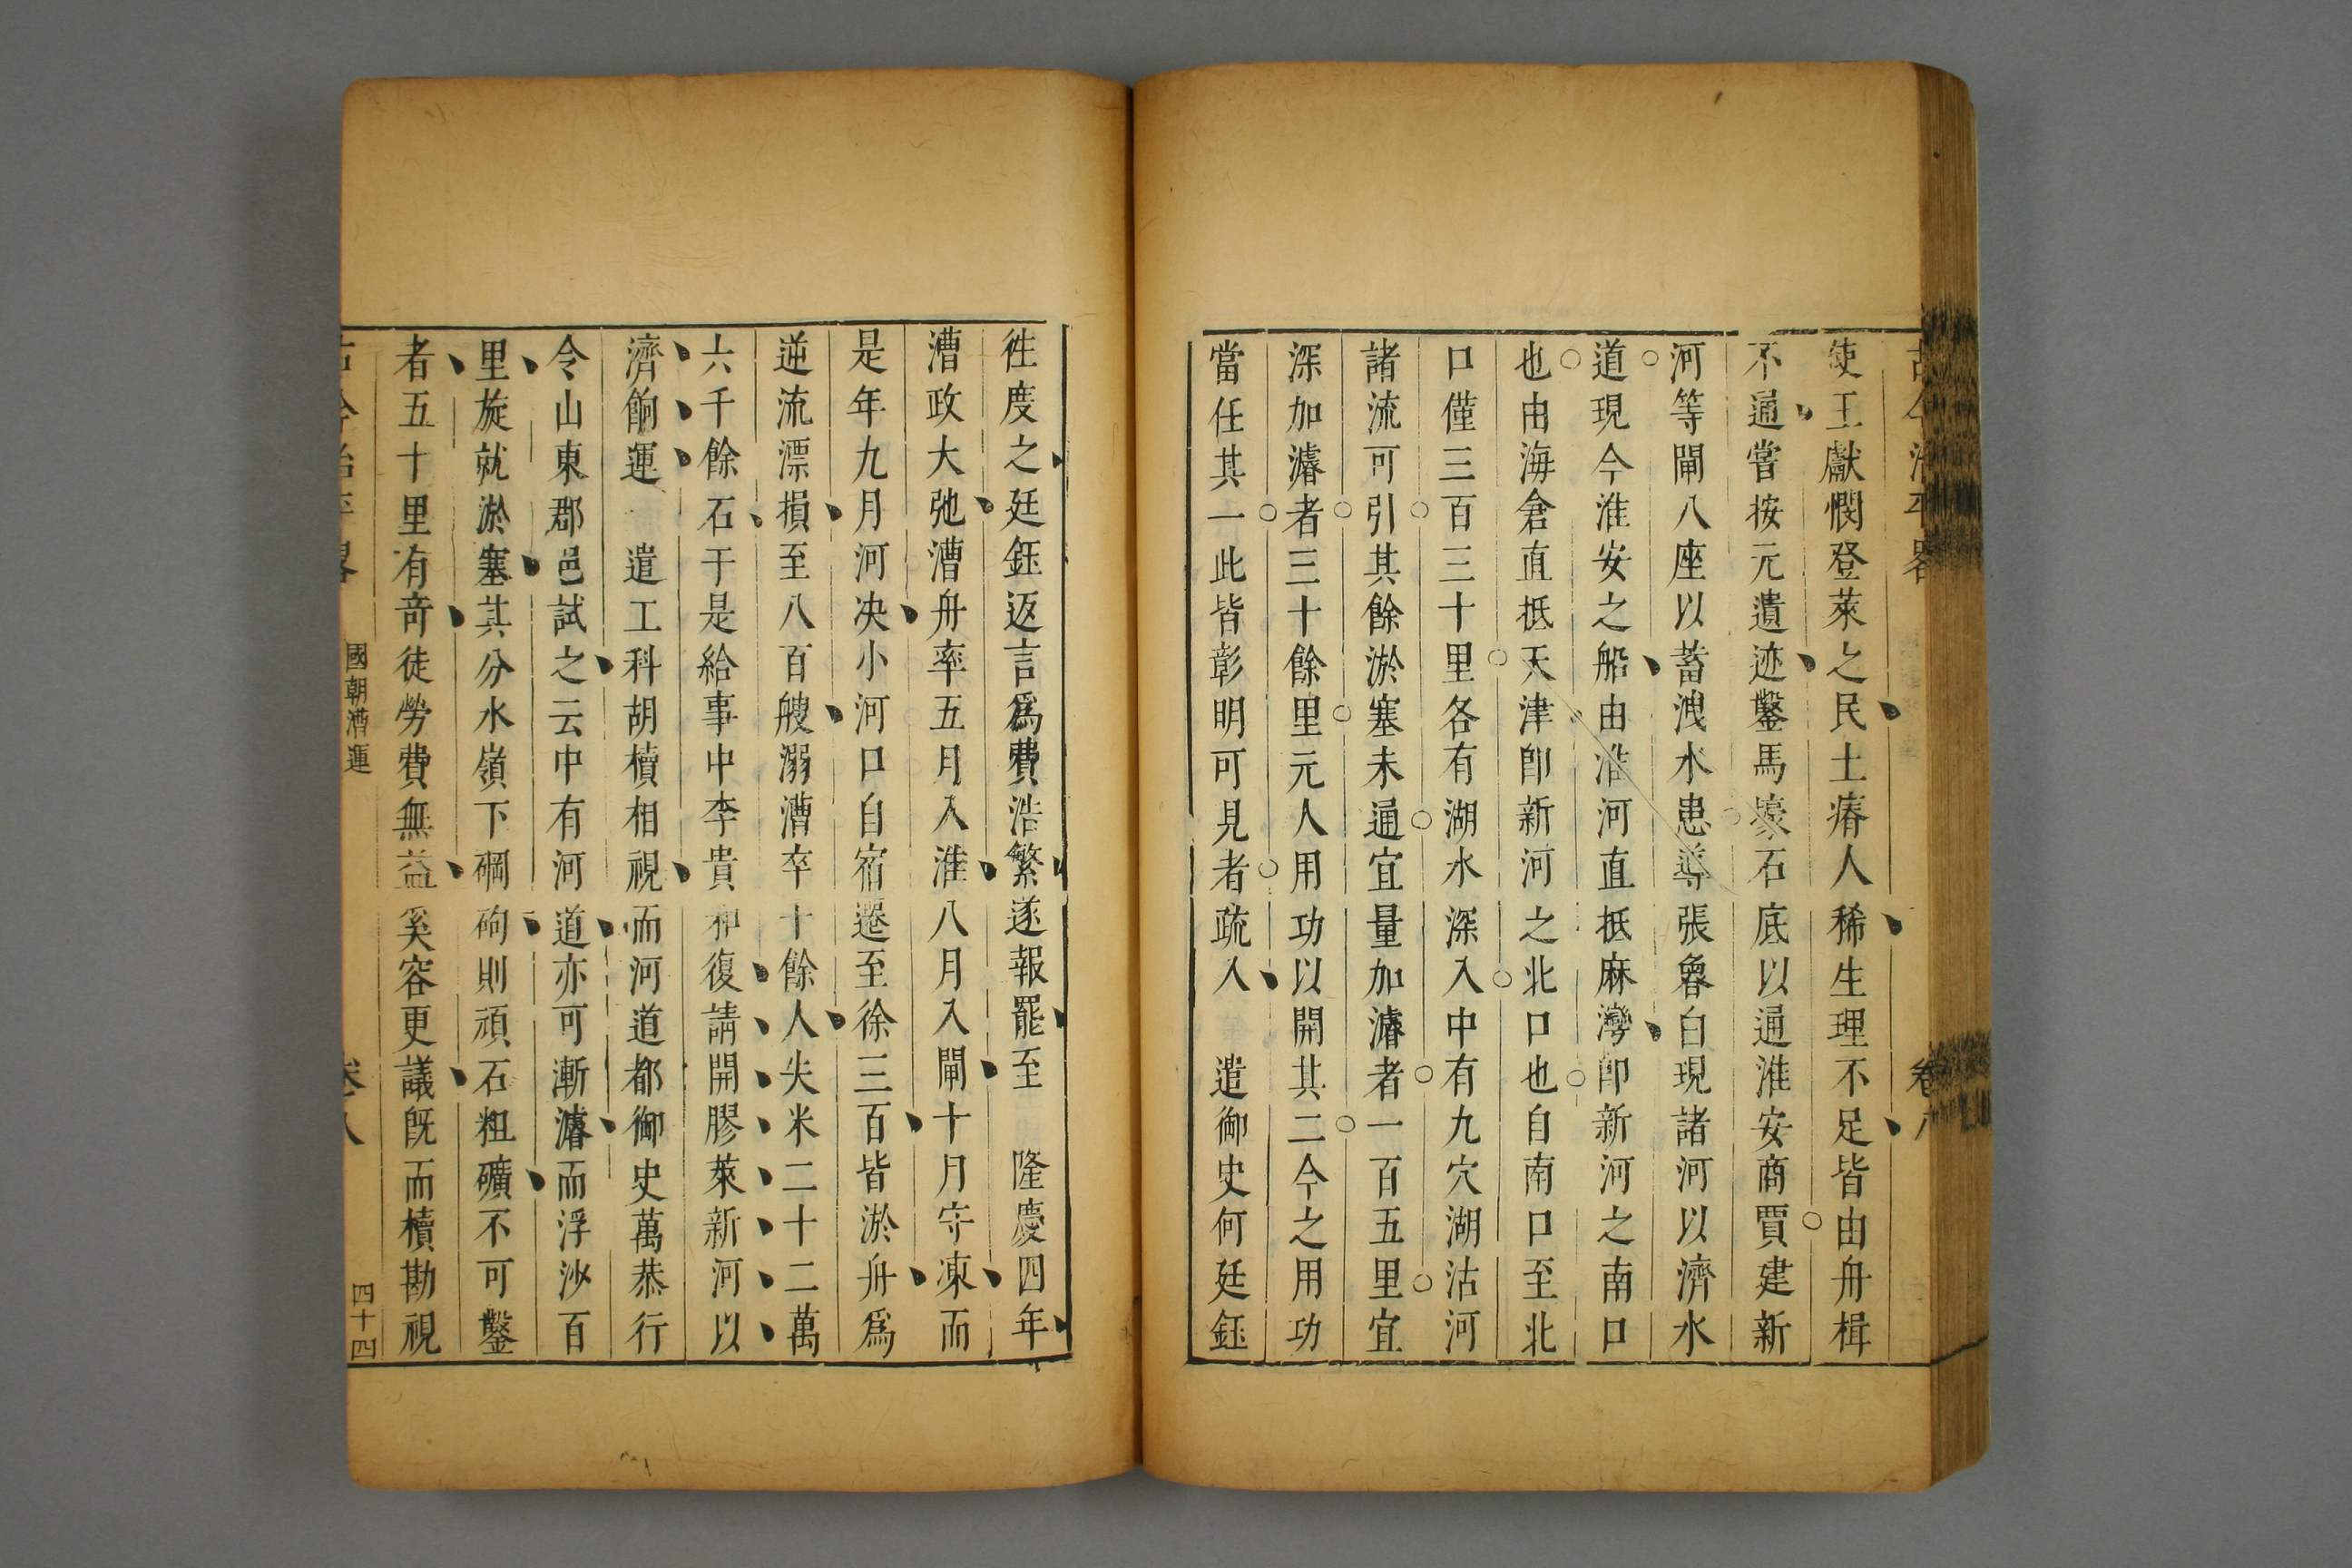 古今治平畧
卷八
使王獻憫登萊之民土瘠人稀生理不足皆由舟楫
不通嘗按元遺迹鑿馬壕石底以通淮安商賈建新
河等閘八座以蓄洩水患導張魯白現諸河以濟水
道現今淮安之船由淮河直抵麻灣卽新河之南口
也由海倉直抵天津卽新河之北口也自南口至北
口僅三百三十里各有湖水深入中有九穴湖沽河
諸流可引其餘淤塞未通宜量加濬者一百五里宜
深加濬者三十餘里元人用功以開其二今之用功
當任其一此皆彰明可見者疏入 遣御史何廷鈺
徃度之廷鈺返言爲費浩繁遂報罷至 隆慶四年
漕政大弛漕舟率五月入淮八月入閘十月守凍而
是年九月河决小河口自宿遷至徐三百皆淤舟爲
逆流漂損至八百艘溺漕卒十餘人失米二十二萬
六千餘石于是給事中李貴和復請開膠萊新河以
濟餉運 遣工科胡檟相視而河道都御史萬恭行
令山東郡邑試之云中有河道亦可漸濬而浮沙百
里旋就淤塞其分水嶺下碙砲則頑石粗礦不可鑿
者五十里有奇徒勞費無益奚容更議旣而檟勘視
古今治平畧
國朝漕運
卷八
四十四